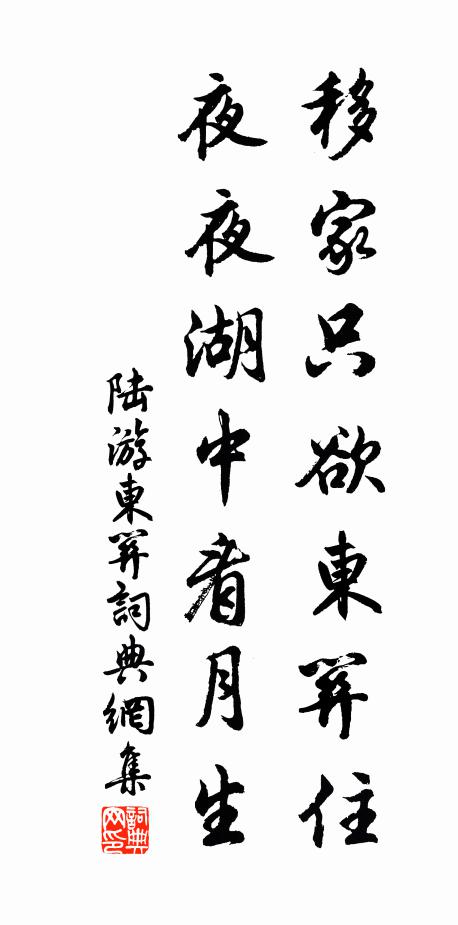 移家只欲東關住
夜夜湖中看月生
陆游東關詞典網集
詞典
网印